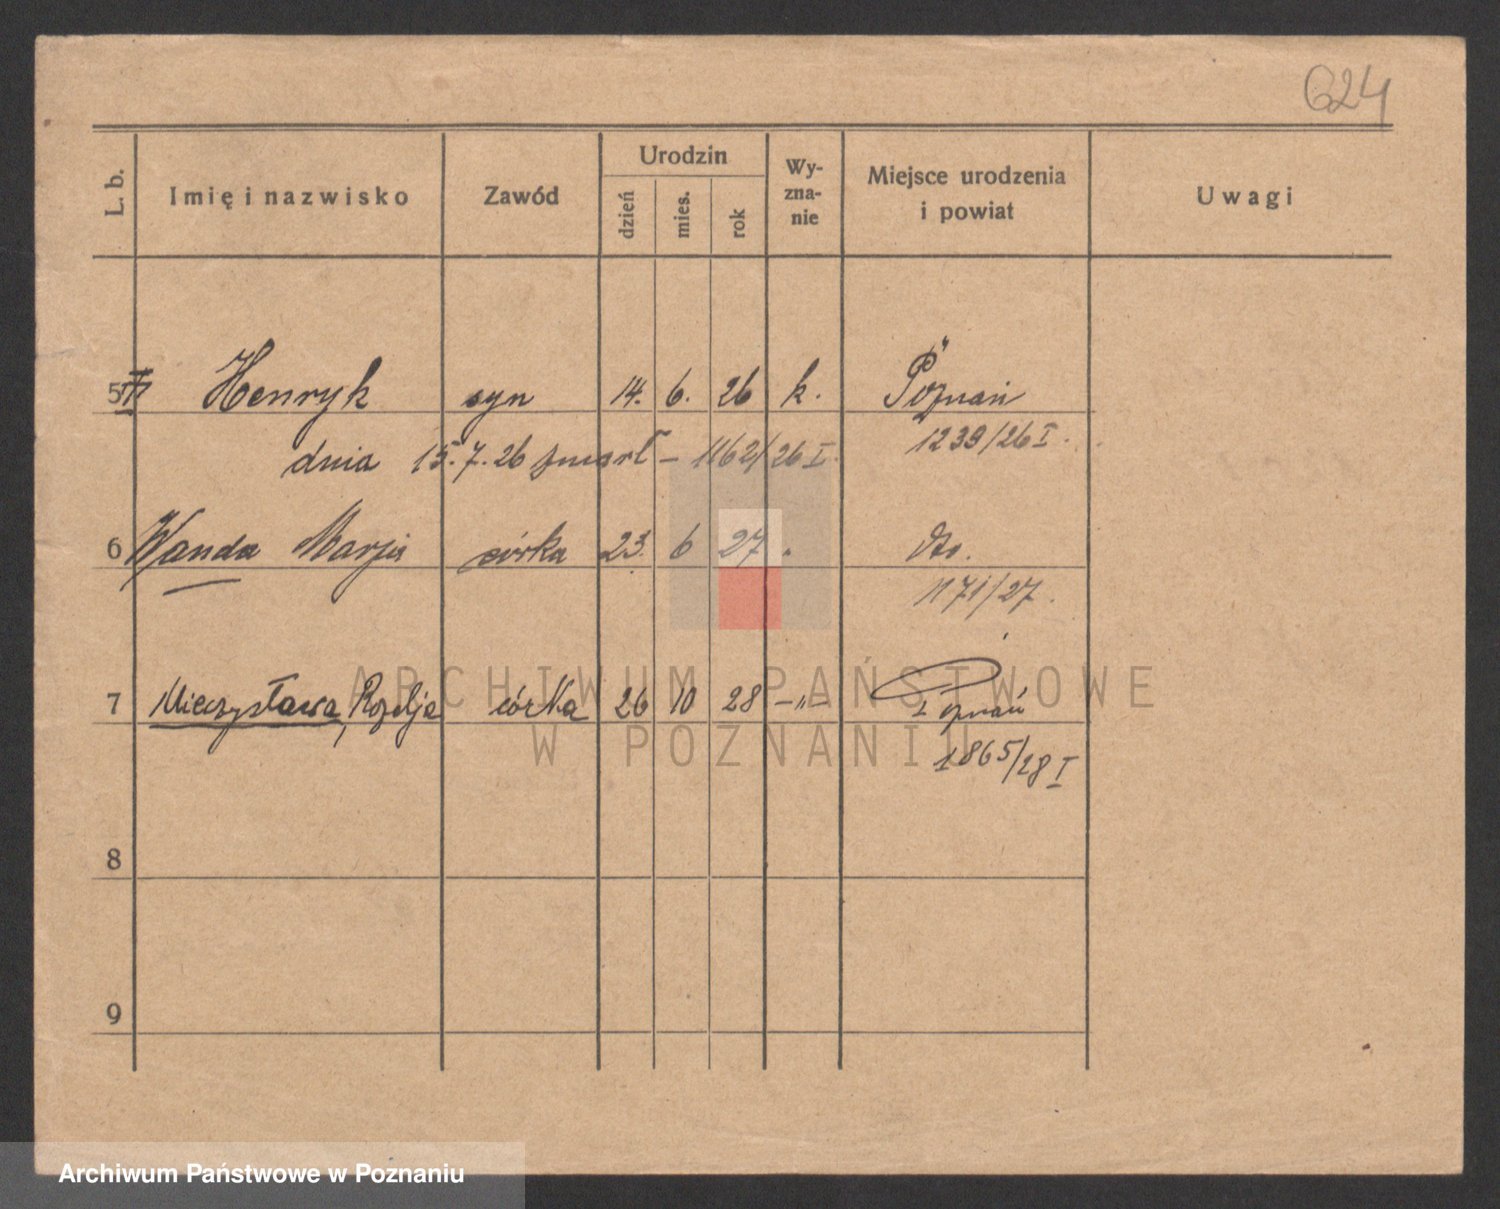 624
L. b. Imię i nazwisko Zawód Urodzin dzień mies. rok Wy-zna-nie Miejsce urodzenia i powiat Uwagi
5 Henryk syn 14. 6. 26 k. Poznań
1239/26 I.
dnia 15.7.26 zmarł – 1162/26 I.
6 Wanda Marja córka 23. 6 27 " dto.
1171/27.
7 Mieczysława, Rozalja córka 26 10 28 –"– Poznań
1865/28 I
8
9
ARCHIWUM PAŃSTWOWE
W POZNANIU
Archiwum Państwowe w Poznaniu